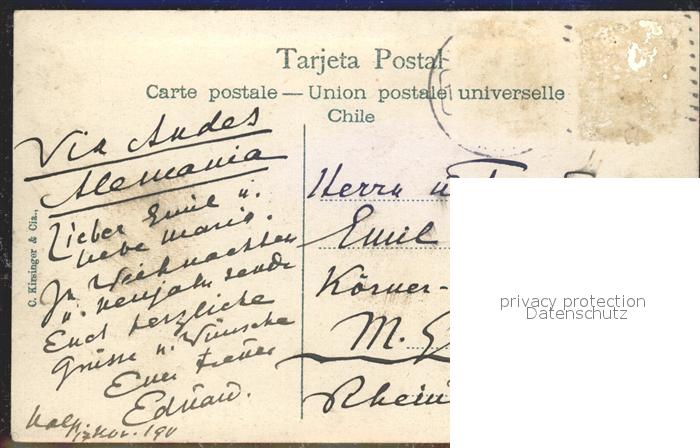 Tarjeta Postal
Carte postale — Union postale universelle
Chile
Via Andes
Alemania
Lieber Emil u.
liebe Maria.
Zu Weihnachten
u. Neujahr sende
Euch herzliche
Grüsse u. Wünsche
Euer treuer
Eduard.
Herrn u.
Emil
Körner-
M.
Rhein
C. Kirsinger & Cia.,
privacy protection
Datenschutz